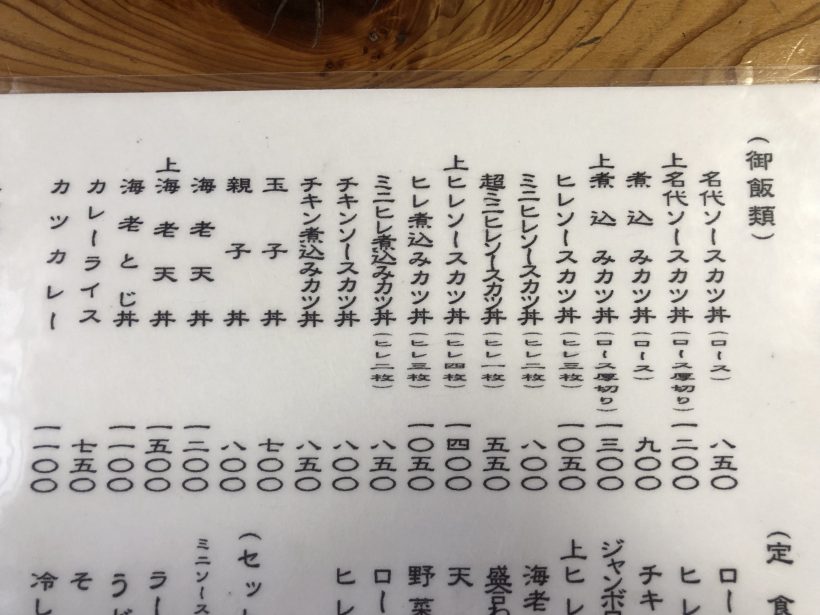 (御飯類)
名代ソースカツ丼(ロース) 八五〇
上名代ソースカツ丼(ロース厚切り) 一二〇〇
煮込みカツ丼(ロース) 九〇〇
上煮込みカツ丼(ロース厚切り) 一三〇〇
ヒレソースカツ丼(ヒレ三枚) 一〇五〇
ミニヒレソースカツ丼(ヒレ二枚) 八〇〇
超ミニヒレソースカツ丼(ヒレ一枚) 五五〇
上ヒレソースカツ丼(ヒレ四枚) 一四〇〇
ヒレ煮込みカツ丼(ヒレ三枚) 一〇五〇
ミニヒレ煮込みカツ丼(ヒレ二枚) 八五〇
チキンソースカツ丼 八〇〇
チキン煮込みカツ丼 八五〇
玉子丼 七〇〇
親子丼 八〇〇
海老天丼 一二〇〇
上海老天丼 一五〇〇
海老とじ丼 一一〇〇
カレーライス 七五〇
カツカレー 一一〇〇
(定食
ロー
ヒレ
チキ
ジャンボ
上ヒ
海老
盛合わ
天
野菜
ロー
ヒレ
(セッ
ミニソース
ラー
うど
そ
冷し